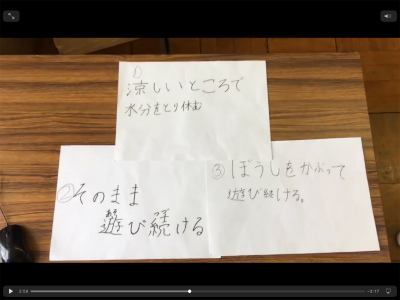 ①
涼しいところで
水分をとり休む
②そのまま
遊び続ける
③ぼうしをかぶって
遊び続ける。